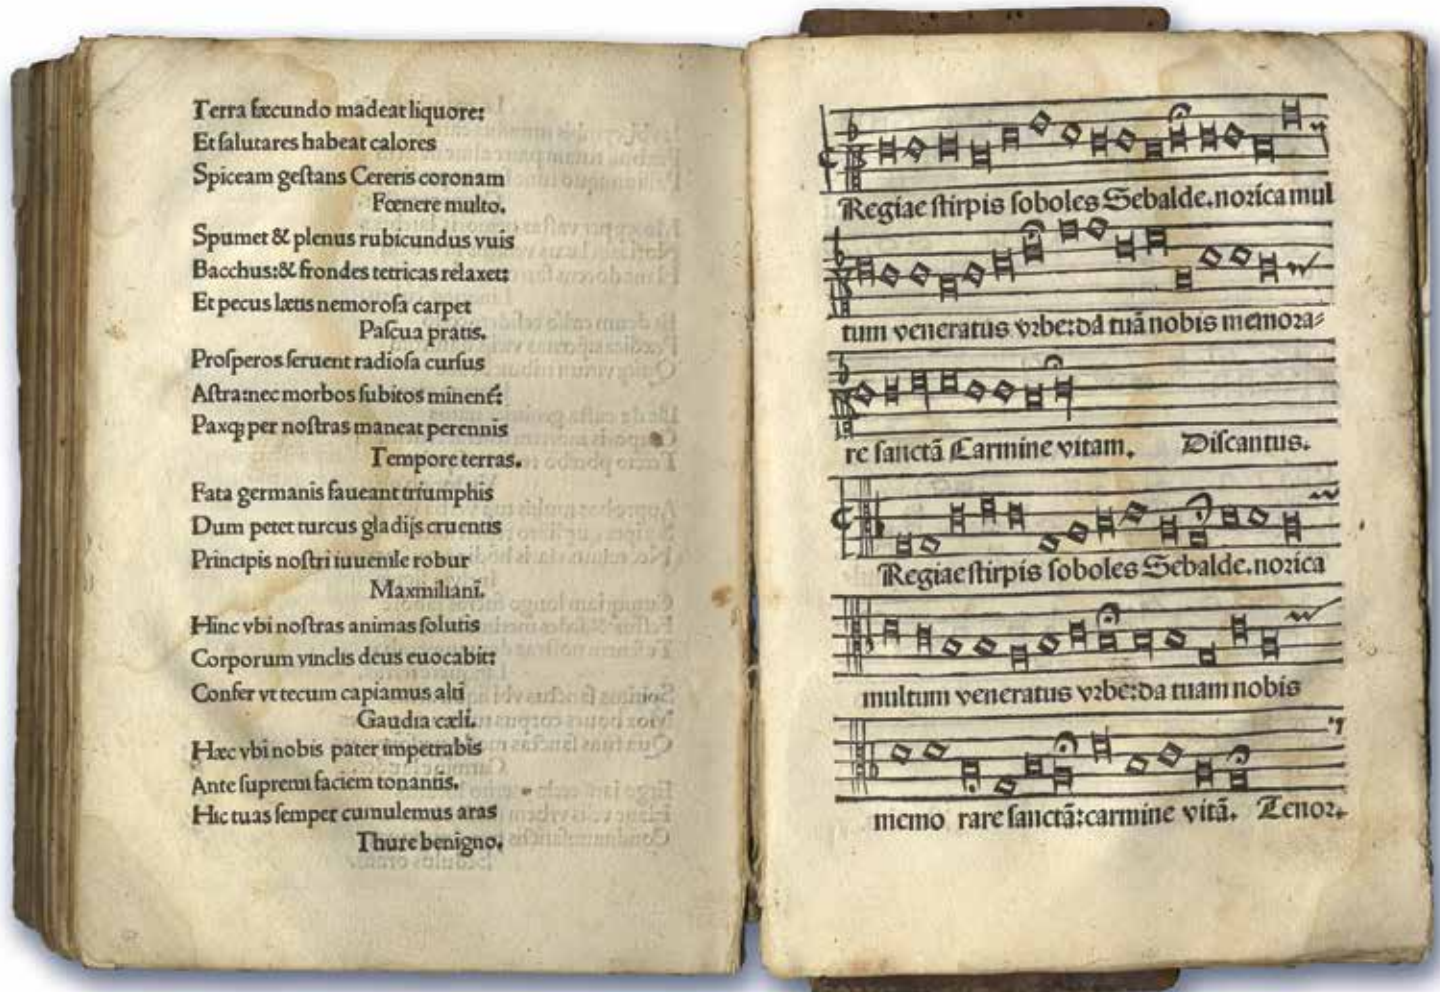 Terra fæcundo madeat liquore:
Et ſalutares habeat calores
Spiceam geſtans Cereris coronam
Fœnere multo.
Spumet & plenus rubicundus vuis
Bacchus:& frondes tetricas relaxet:
Et pecus lætis nemoroſa carpet
Paſcua pratis.
Proſperos ſeruent radioſa curſus
Aſtra:nec morbos ſubitos minenť:
Paxqꝫ per noſtras maneat perennis
Tempore terras.
Fata germanis faueant triumphis
Dum petet turcus gladijs cruentis
Principis noſtri iuuenile robur
Maxmiliani.
Hinc vbi noſtras animas ſolutis
Corporum vinclis deus euocabit:
Confer vt tecum capiamus alti
Gaudia cæli.
Hæc vbi nobis pater impetrabis
Ante ſupremi faciem tonantis.
Hic tuas ſemper cumulemus aras
Thure benigno.
Regiae ſtirpis ſoboles Sebalde.norica mul
tum veneratus vrbe:dā tuā nobis memora⸗
re ſanctā Carmine vitam. Diſcantus.
Regiae ſtirpis ſoboles Sebalde.norica
multum veneratus vrbe:da tuam nobis
memo rare ſanctā:carmine vitā. Tenor.